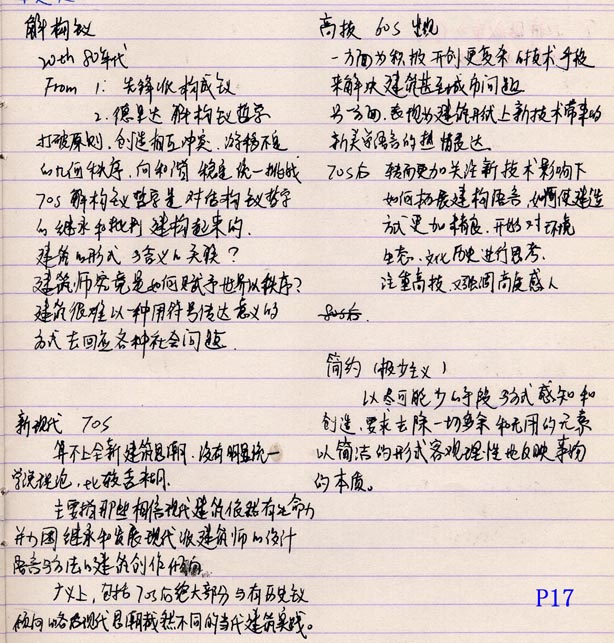 解构主义
20th 80年代
From 1: 先锋派构成主义
2. 德里达 解构主义哲学
打破原则，创造相互冲突、游移不定
的几何秩序，向和谐 稳定 统一挑战
70s 解构主义哲学是对结构主义哲学
的继承和批判 建构起来的.
建筑的形式与含义的关联？
建筑师究竟是如何赋予世界以秩序？
建筑很难以一种用符号传达意义的
方式去回应各种社会问题.
新现代 70S
算不上全新建筑思潮. 没有明显统一
学说理论, 比较含糊.
主要指那些相信现代建筑依然有生命力
并力图继承和发展现代派建筑师的设计
语言与方法的建筑创作倾向
广义上, 包括70s后绝大部分与有历史主义
倾向的后现代思潮截然不同的当代建筑实践。
高技 60S 出现
一方面为积极开创更复杂的技术手段
来解决建筑甚至城市问题
另一方面, 表现为建筑形式上新技术带来的
新美学语言的热情表达.
70S后 转而更加关注新技术影响下
如何拓展建构语言, 如何使建造
方式更加精良, 开始对环境
生态、文化历史进行思考.
注重高技, 又强调高度感人
80s后.
简约（极少主义）
以尽可能少的手段与方式感知和
创造, 要求去除一切多余和无用的元素
以简洁的形式客观理性地反映事物
的本质。
P17